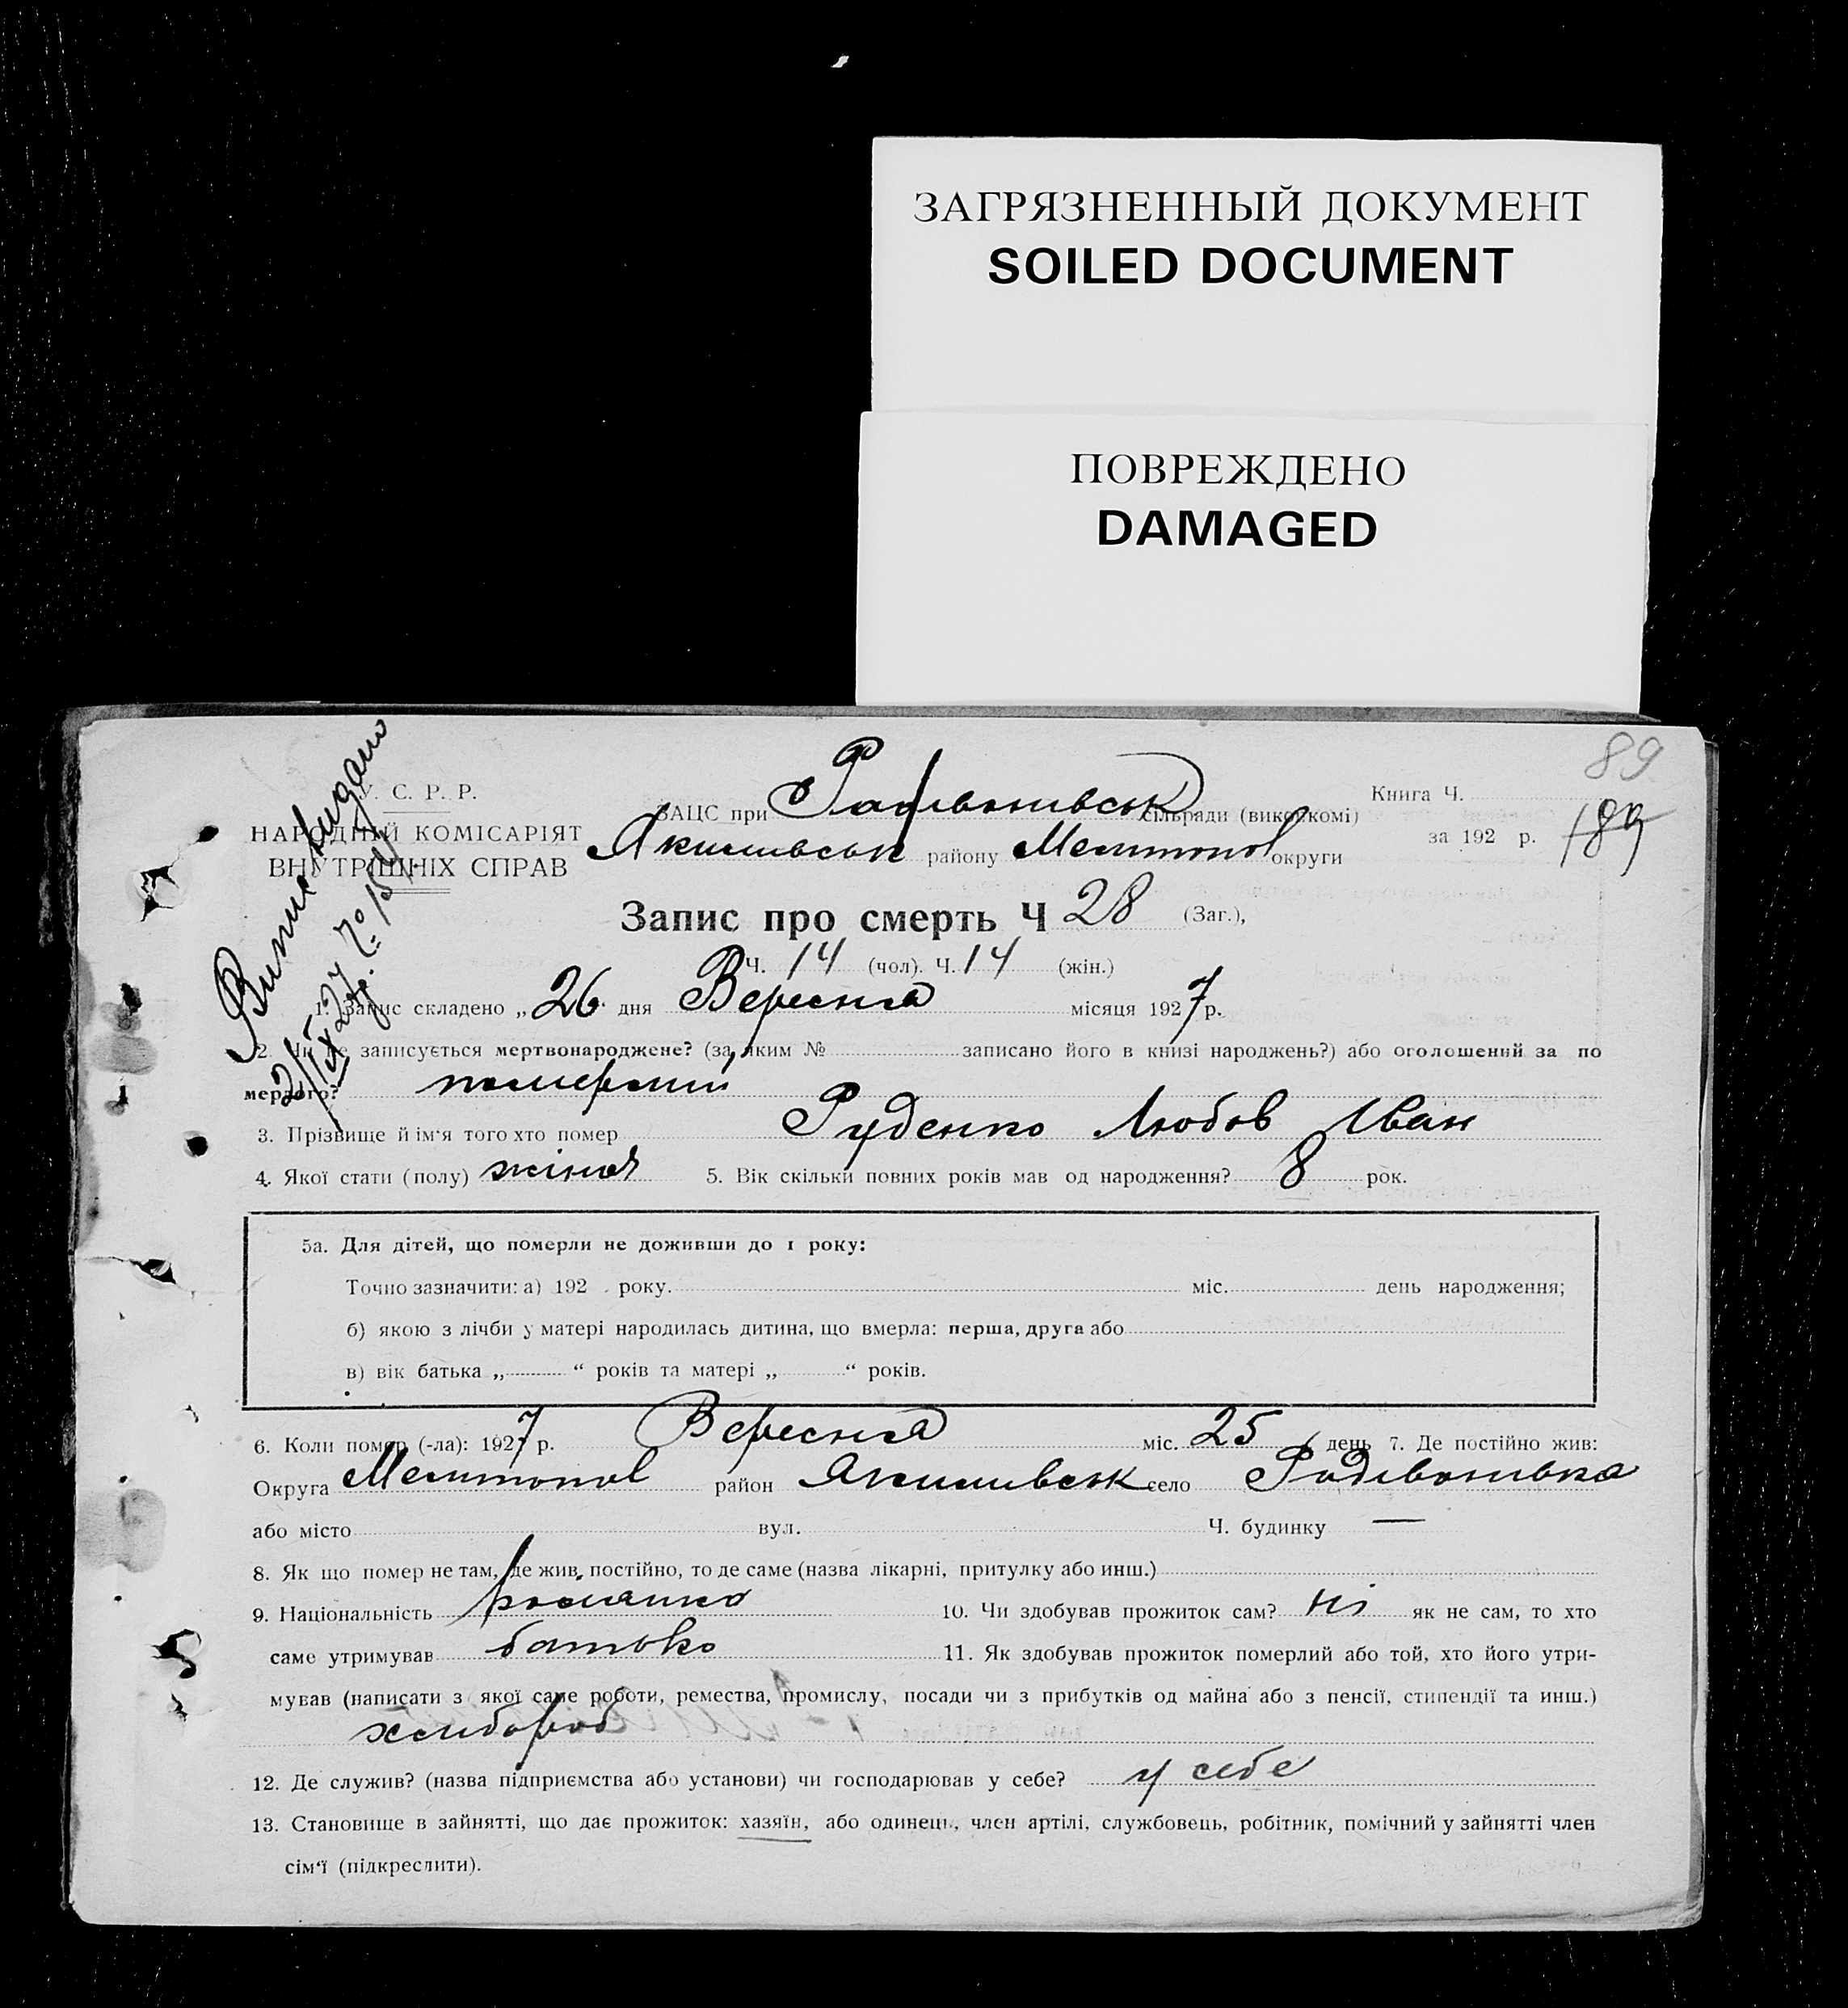 ЗАГРЯЗНЕННЫЙ ДОКУМЕНТ
SOILED DOCUMENT
ПОВРЕЖДЕНО
DAMAGED
89
У. С. Р. Р.
НАРОДНІЙ КОМІСАРІЯТ
ВНУТРІШНІХ СПРАВ
ЗАЦС при Радівонивськ сільради (виконкомі)
Якимивськ району Мелитопол округи
Книга Ч.
за 192 р. 189
Запис про смерть Ч 28 (Заг.),
Ч. 14 (чол). Ч. 14 (жін.)
1. Запис складено „ 26 дня Вересня місяця 1927 р.
2. Чи не записується мертвонароджене? (за яким № записано його в книзі народжень?) або оголошений за по
мерлого? померший
3. Прізвище й ім'я того хто помер Руденко Любов Іван
4. Якої стати (полу) жіноч 5. Вік скільки повних років мав од народження? 8 рок.
5а. Для дітей, що померли не доживши до 1 року:
Точно зазначити: а) 192 . року. міс. день народження;
б) якою з лічби у матері народилась дитина, що вмерла: перша, друга або
в) вік батька „ “ років та матері „ “ років.
6. Коли помер (-ла): 1927 р. Вересня міс. 25 день 7. Де постійно жив:
Округа Мелитопол район Якимивськ село Радивонивка
або місто вул. Ч. будинку —
8. Як що помер не там, де жив постійно, то де саме (назва лікарні, притулку або инш.)
9. Національність 10. Чи здобував прожиток сам? ні як не сам, то хто
саме утримував батько 11. Як здобував прожиток померлий або той, хто його утри-
мував (написати з якої саме роботи, ремества, промислу, посади чи з прибутків од майна або з пенсії, стипендії та инш.)
хлибороб
12. Де служив? (назва підприємства або установи) чи господарював у себе? у себе
13. Становище в зайнятті, що дає прожиток: хазяїн, або одинець, член артілі, службовець, робітник, помічний у зайнятті член
сім'ї (підкреслити).